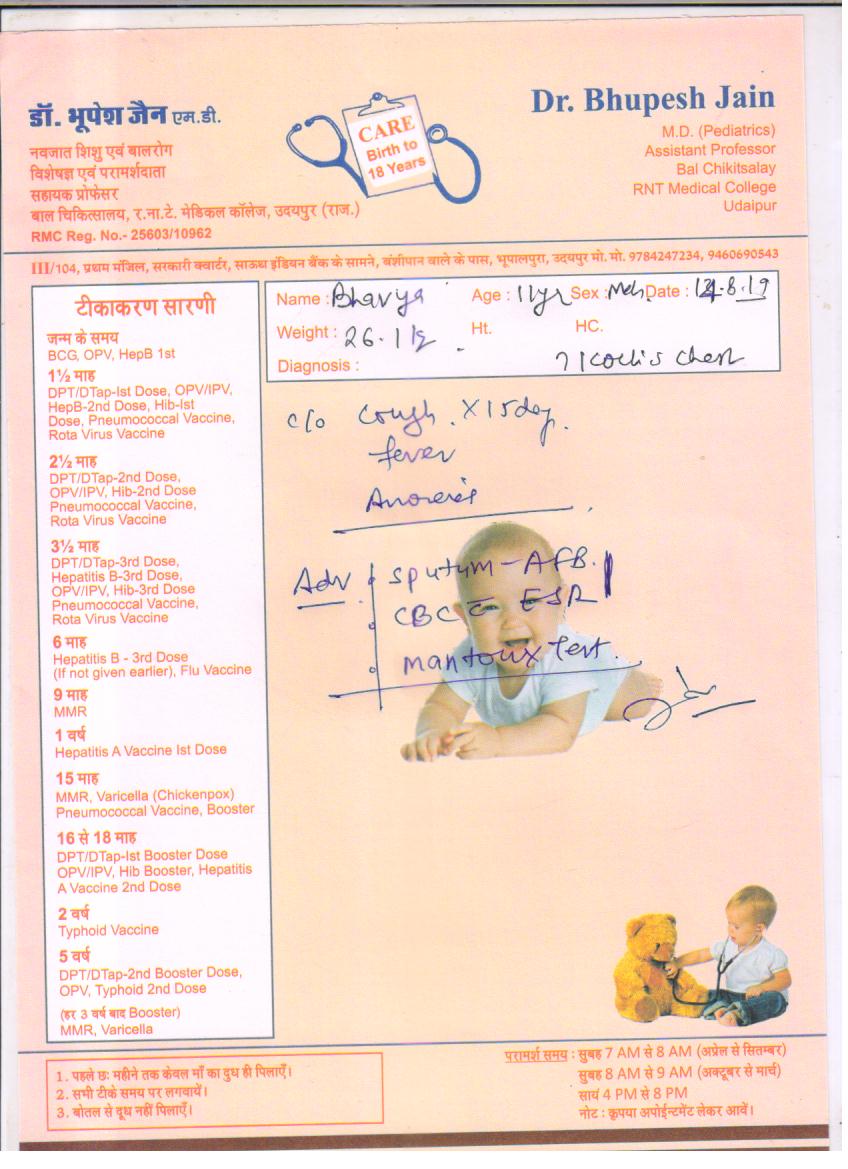 डॉ. भूपेश जैन एम.डी.
नवजात शिशु एवं बालरोग
विशेषज्ञ एवं परामर्शदाता
सहायक प्रोफेसर
बाल चिकित्सालय, र.ना.टे. मेडिकल कॉलेज, उदयपुर (राज.)
RMC Reg. No.- 25603/10962
CARE
Birth to
18 Years
Dr. Bhupesh Jain
M.D. (Pediatrics)
Assistant Professor
Bal Chikitsalay
RNT Medical College
Udaipur
III/104, प्रथम मंजिल, सरकारी क्वार्टर, साऊथ इंडियन बैंक के सामने, बंशीपान वाले के पास, भूपालपुरा, उदयपुर मो. मो. 9784247234, 9460690543
टीकाकरण सारणी
जन्म के समय
BCG, OPV, HepB 1st
1½ माह
DPT/DTap-Ist Dose, OPV/IPV,
HepB-2nd Dose, Hib-Ist
Dose, Pneumococcal Vaccine,
Rota Virus Vaccine
2½ माह
DPT/DTap-2nd Dose,
OPV/IPV, Hib-2nd Dose
Pneumococcal Vaccine,
Rota Virus Vaccine
3½ माह
DPT/DTap-3rd Dose,
Hepatitis B-3rd Dose,
OPV/IPV, Hib-3rd Dose
Pneumococcal Vaccine,
Rota Virus Vaccine
6 माह
Hepatitis B - 3rd Dose
(If not given earlier), Flu Vaccine
9 माह
MMR
1 वर्ष
Hepatitis A Vaccine Ist Dose
15 माह
MMR, Varicella (Chickenpox)
Pneumococcal Vaccine, Booster
16 से 18 माह
DPT/DTap-Ist Booster Dose
OPV/IPV, Hib Booster, Hepatitis
A Vaccine 2nd Dose
2 वर्ष
Typhoid Vaccine
5 वर्ष
DPT/DTap-2nd Booster Dose,
OPV, Typhoid 2nd Dose
(हर 3 वर्ष बाद Booster)
MMR, Varicella
Name : Bhavya Age : 11yr Sex : Date : .8.19
Weight : 26.1 kg Ht. HC.
Diagnosis : ? Koch's chest
c/o cough. X 15 day.
fever
Anorexia
Adv sputum - AFB.
CBC c̄ ESR
Mantoux Test.
1. पहले छः महीने तक केवल माँ का दुध ही पिलाएँ।
2. सभी टीके समय पर लगवायें।
3. बोतल से दूध नहीं पिलाएँ।
परामर्श समय : सुबह 7 AM से 8 AM (अप्रेल से सितम्बर)
सुबह 8 AM से 9 AM (अक्टूबर से मार्च)
सायं 4 PM से 8 PM
नोट : कृपया अपोईन्टमेंट लेकर आवें।